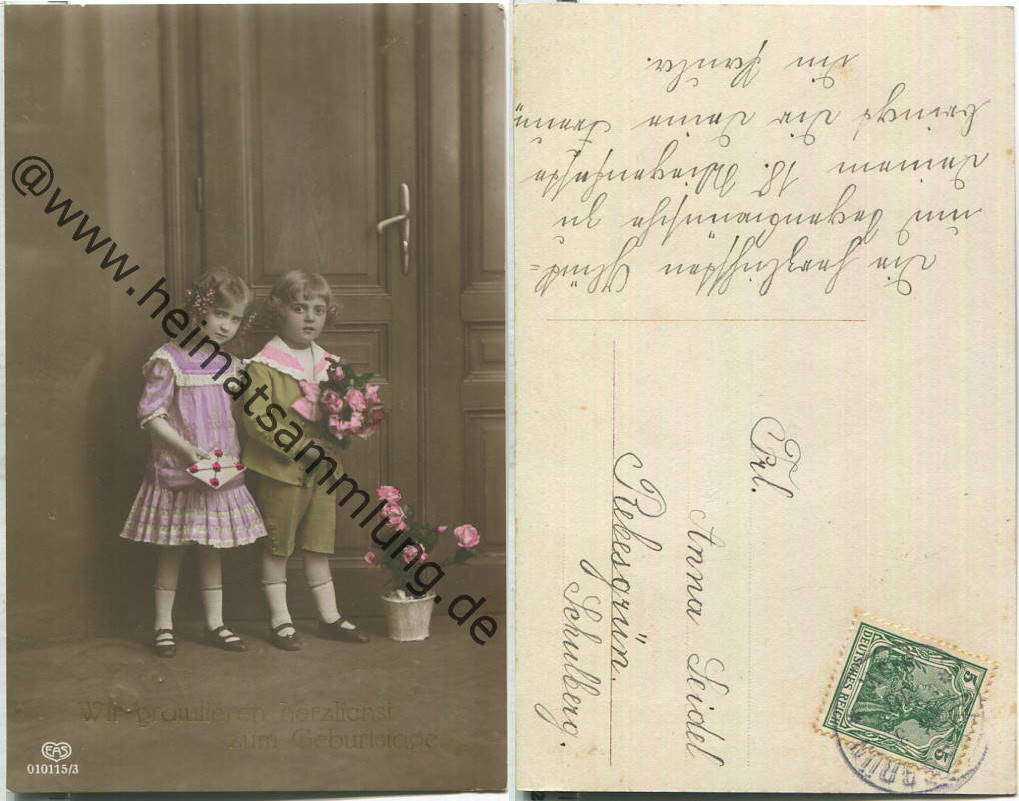 @www.heimatsammlung.de
Wir gratulieren herzlichst
zum Geburtstage
EAS
010115/3
Die herzlichsten Glück=
und Segenswünsche zu
Deinem 18. Wiegenfeste
bringt dir deine
Frl.
Anna Seidel
Rebesgrün.
Schulberg.
DEUTSCHES REICH
5
5